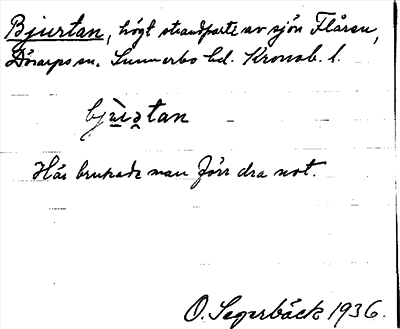 Bjurtan, högt strandparti av sjön Flåren,
Dörarps sn. Sunnerbo hd. Kronob. l.
Här brukade man förr dra not.
O. Segerbäck 1936.